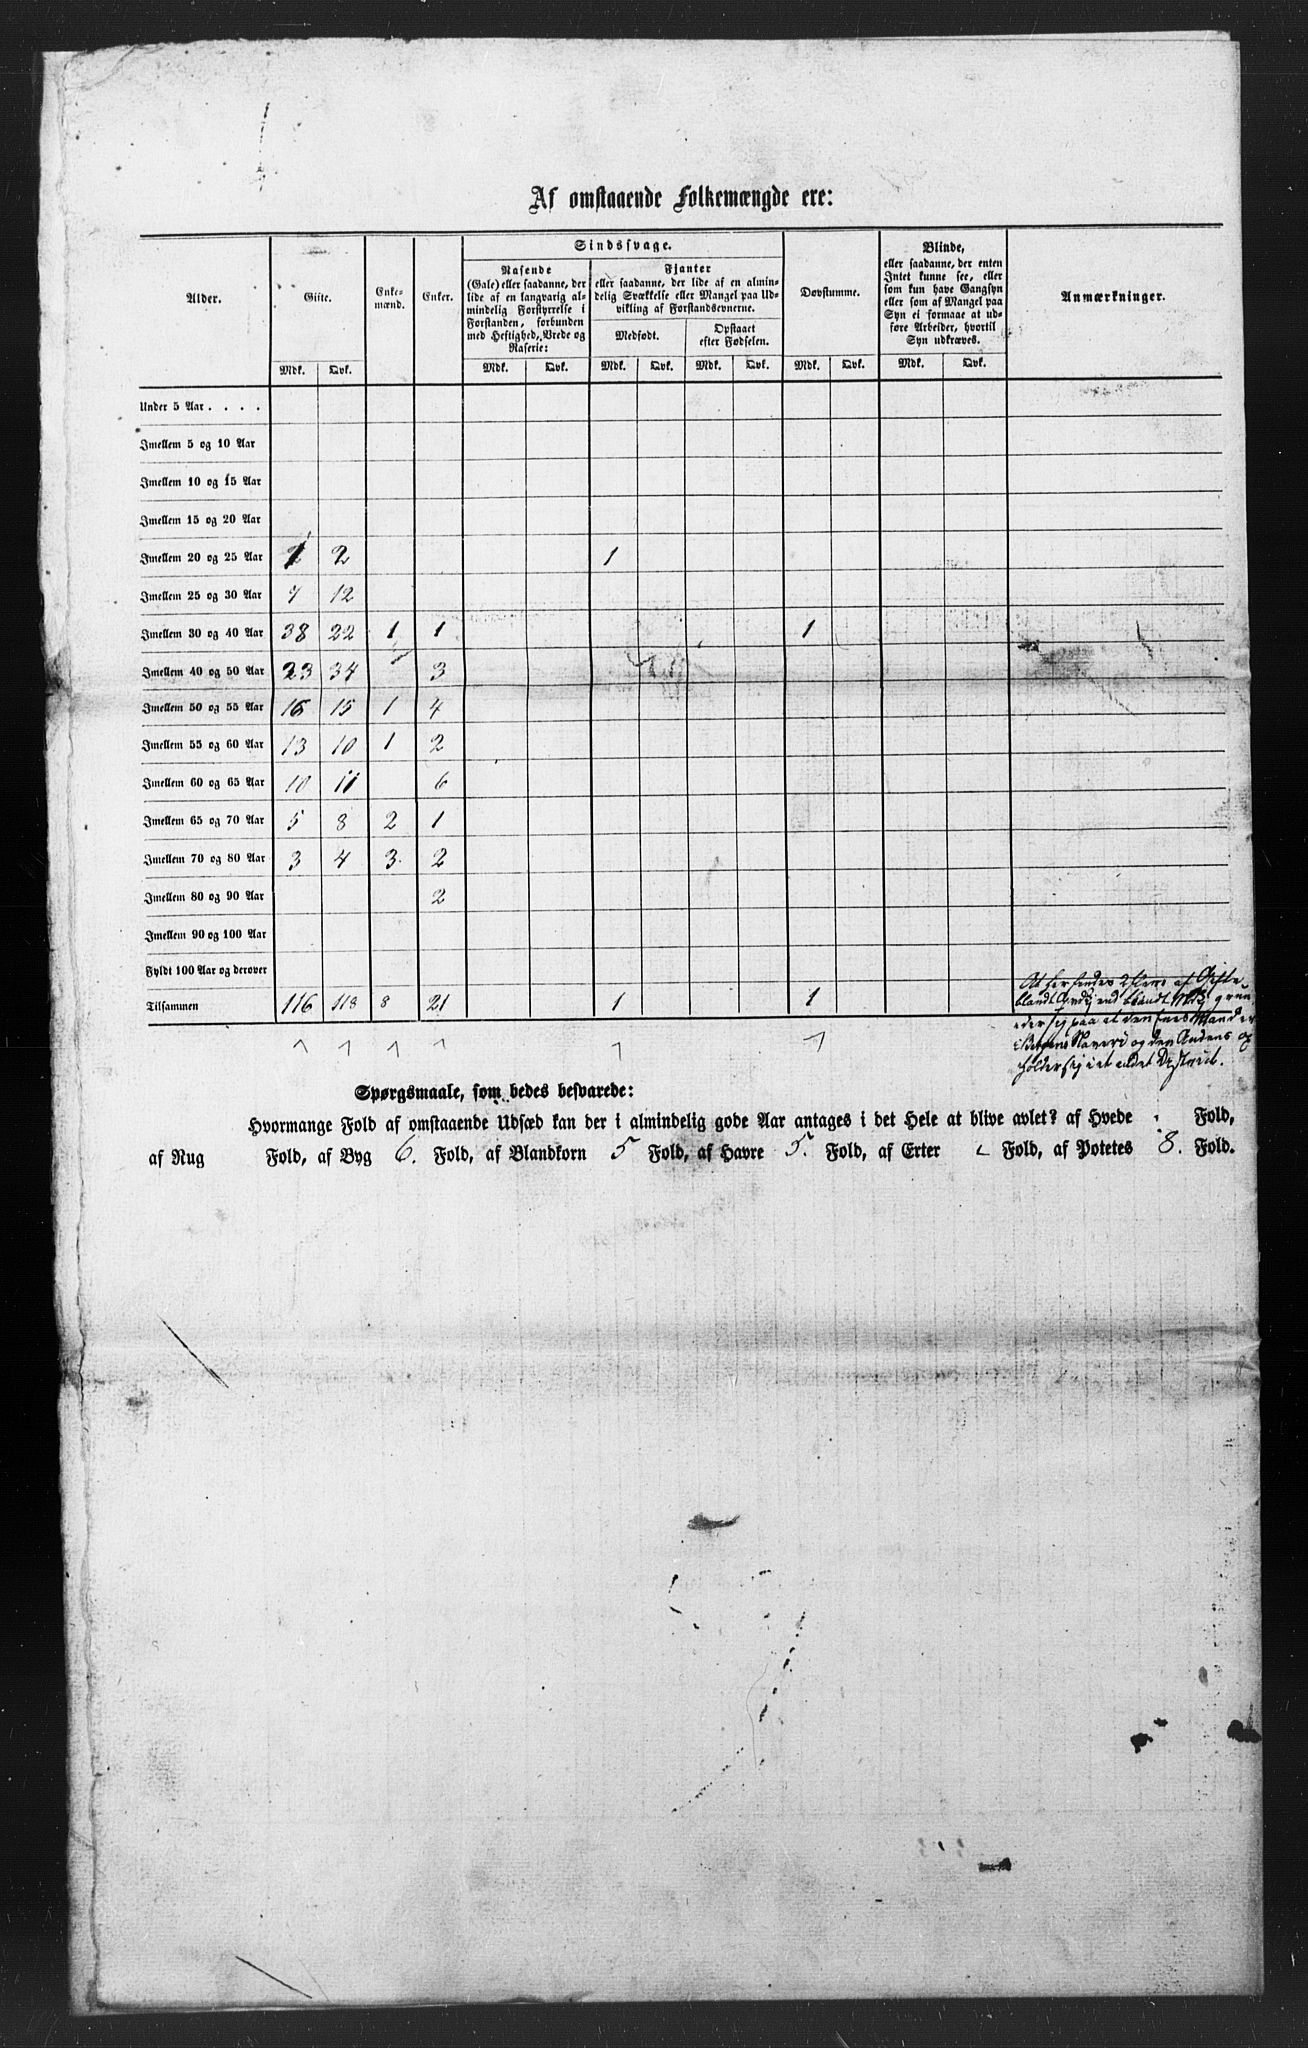 Af omstaaende Folkemængde ere:
Alder. Gifte. Enke-mænd. Enker. Sindssvage. Dovstumme. Blinde, Anmærkninger.
Rasende
(Gale) eller saadanne, der
lide af en langvarig al-
mindelig Forstyrrelse i
Forstanden, forbunden
med Heftighed, Vrede og
Raserie:
Fjanter
eller saadanne, der lide af en almin-
delig Svækkelse eller Mangel paa Ud-
vikling af Forstandsevnerne.
Medfødt.
Opstaaet
efter Fødselen.
eller saadanne, der enten
Intet kunne see, eller
som kun have Gangsyn
eller som af Mangel paa
Syn ei formaae at ud-
føre Arbeider, hvortil
Syn udkræves.
Mdk. Qvk. Mdk. Qvk. Mdk. Qvk. Mdk. Qvk. Mdk. Qvk. Mdk. Qvk.
Under 5 Aar . . . .
Imellem 5 og 10 Aar
Imellem 10 og 15 Aar
Imellem 15 og 20 Aar
Imellem 20 og 25 Aar 1 2 1
Imellem 25 og 30 Aar 7 12
Imellem 30 og 40 Aar 38 22 1 1 1
Imellem 40 og 50 Aar 23 34 3
Imellem 50 og 55 Aar 16 15 1 4
Imellem 55 og 60 Aar 13 10 1 2
Imellem 60 og 65 Aar 10 11 6
Imellem 65 og 70 Aar 5 8 2 1
Imellem 70 og 80 Aar 3 4 3 2
Imellem 80 og 90 Aar 2
Imellem 90 og 100 Aar
Fyldt 100 Aar og derover
Tilsammen 116 118 8 21 1 1
At her findes 2 flere af Gifte
blandt Qvkj end blandt Mdk: grun
eder sig paa at den Enes Mand er
i Slaveri og den Andens op
holder sig i et andet District.
Spørgsmaale, som bedes besvarede:
Hvormange Fold af omstaaende Udsæd kan der i almindelig gode Aar antages i det Hele at blive avlet? af Hvede Fold,
af Rug Fold, af Byg 6. Fold, af Blandkorn 5 Fold, af Havre 5. Fold, af Erter Fold, af Potetes 8. Fold.